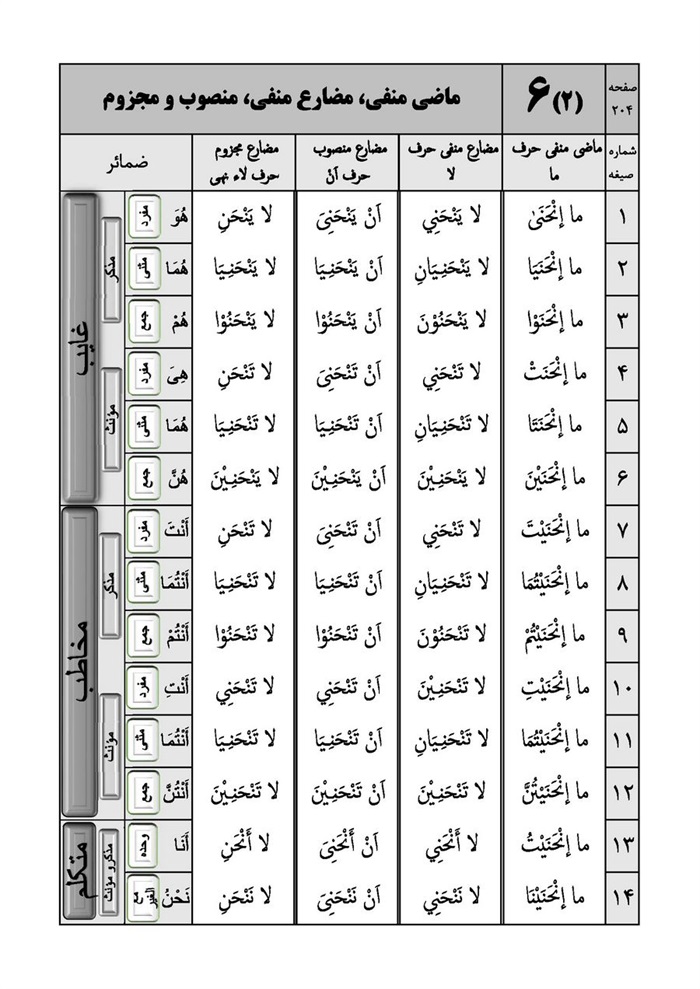 صفحه ۲۰۴ ۶(۲) ماضی منفی، مضارع منفی، منصوب و مجزوم
شماره صیغه ماضی منفی حرف ما مضارع منفی حرف لا مضارع منصوب حرف اَنْ مضارع مجزوم حرف لاء نهی ضمائر
۱ ما إنْحَنَىٰ لا يَنْحَنِي اَنْ يَنْحَنِىَ لا يَنْحَنِ هُوَ مفرد مذکر غایب
۲ ما إنْحَنَيَا لا يَنْحَنِيَانِ اَنْ يَنْحَنِيَا لا يَنْحَنِيَا هُمَا مثنی
۳ ما إنْحَنَوْا لا يَنْحَنُوْنَ اَنْ يَنْحَنُوْا لا يَنْحَنُوْا هُمْ جمع
۴ ما إنْحَنَتْ لا تَنْحَنِي اَنْ تَنْحَنِىَ لا تَنْحَنِ هِىَ مفرد مؤنث
۵ ما إنْحَنَتَا لا تَنْحَنِيَانِ اَنْ تَنْحَنِيَا لا تَنْحَنِيَا هُمَا مثنی
۶ ما إنْحَنَيْنَ لا يَنْحَنِيْنَ اَنْ يَنْحَنِيْنَ لا يَنْحَنِيْنَ هُنَّ جمع
۷ ما إنْحَنَيْتَ لا تَنْحَنِي اَنْ تَنْحَنِىَ لا تَنْحَنِ أَنْتَ مفرد مذکر مخاطب
۸ ما إنْحَنَيْتُمَا لا تَنْحَنِيَانِ اَنْ تَنْحَنِيَا لا تَنْحَنِيَا أَنْتُمَا مثنی
۹ ما إنْحَنَيْتُمْ لا تَنْحَنُوْنَ اَنْ تَنْحَنُوْا لا تَنْحَنُوْا أَنْتُمْ جمع
۱۰ ما إنْحَنَيْتِ لا تَنْحَنِيْنَ اَنْ تَنْحَنِي لا تَنْحَنِي أَنْتِ مفرد مؤنث
۱۱ ما إنْحَنَيْتُمَا لا تَنْحَنِيَانِ اَنْ تَنْحَنِيَا لا تَنْحَنِيَا أَنْتُمَا مثنی
۱۲ ما إنْحَنَيْتُنَّ لا تَنْحَنِيْنَ اَنْ تَنْحَنِيْنَ لا تَنْحَنِيْنَ أَنْتُنَّ جمع
۱۳ ما إنْحَنَيْتُ لا أَنْحَنِي اَنْ أَنْحَنِىَ لا أَنْحَنِ أَنَا وحده مذکر و مؤنث متکلم
۱۴ ما إنْحَنَيْنَا لا نَنْحَنِي اَنْ نَنْحَنِىَ لا نَنْحَنِ نَحْنُ مع الغیر